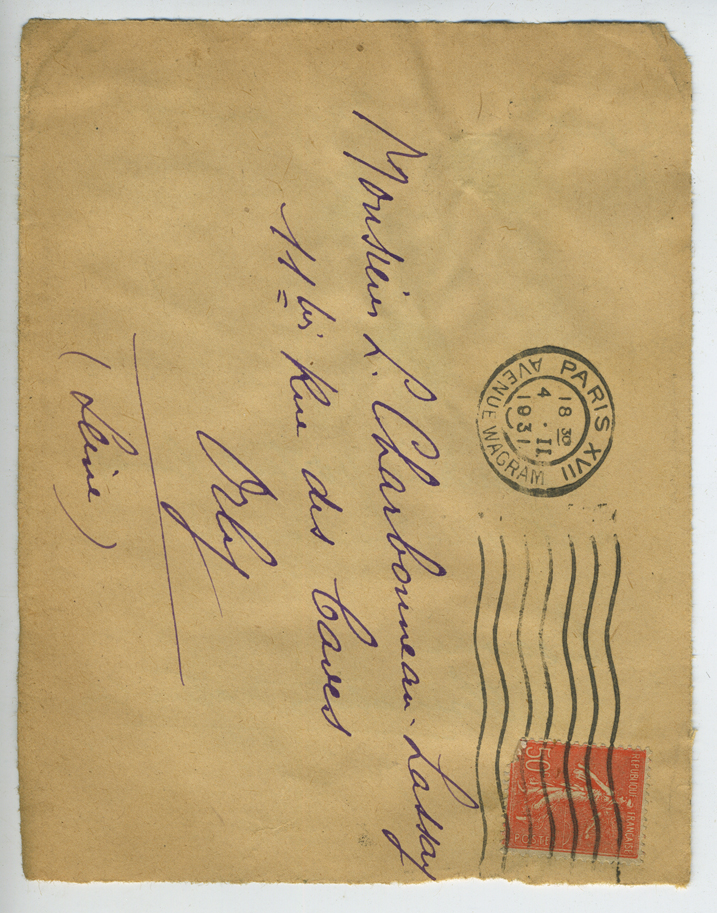 Monsieur L. Charbonneau-Lassay
11 bis Rue des Caves
Orly
(Seine)
PARIS XVII
AVENUE WAGRAM
18 30
4 . II
1931
RÉPUBLIQUE FRANÇAISE
50c
POSTES